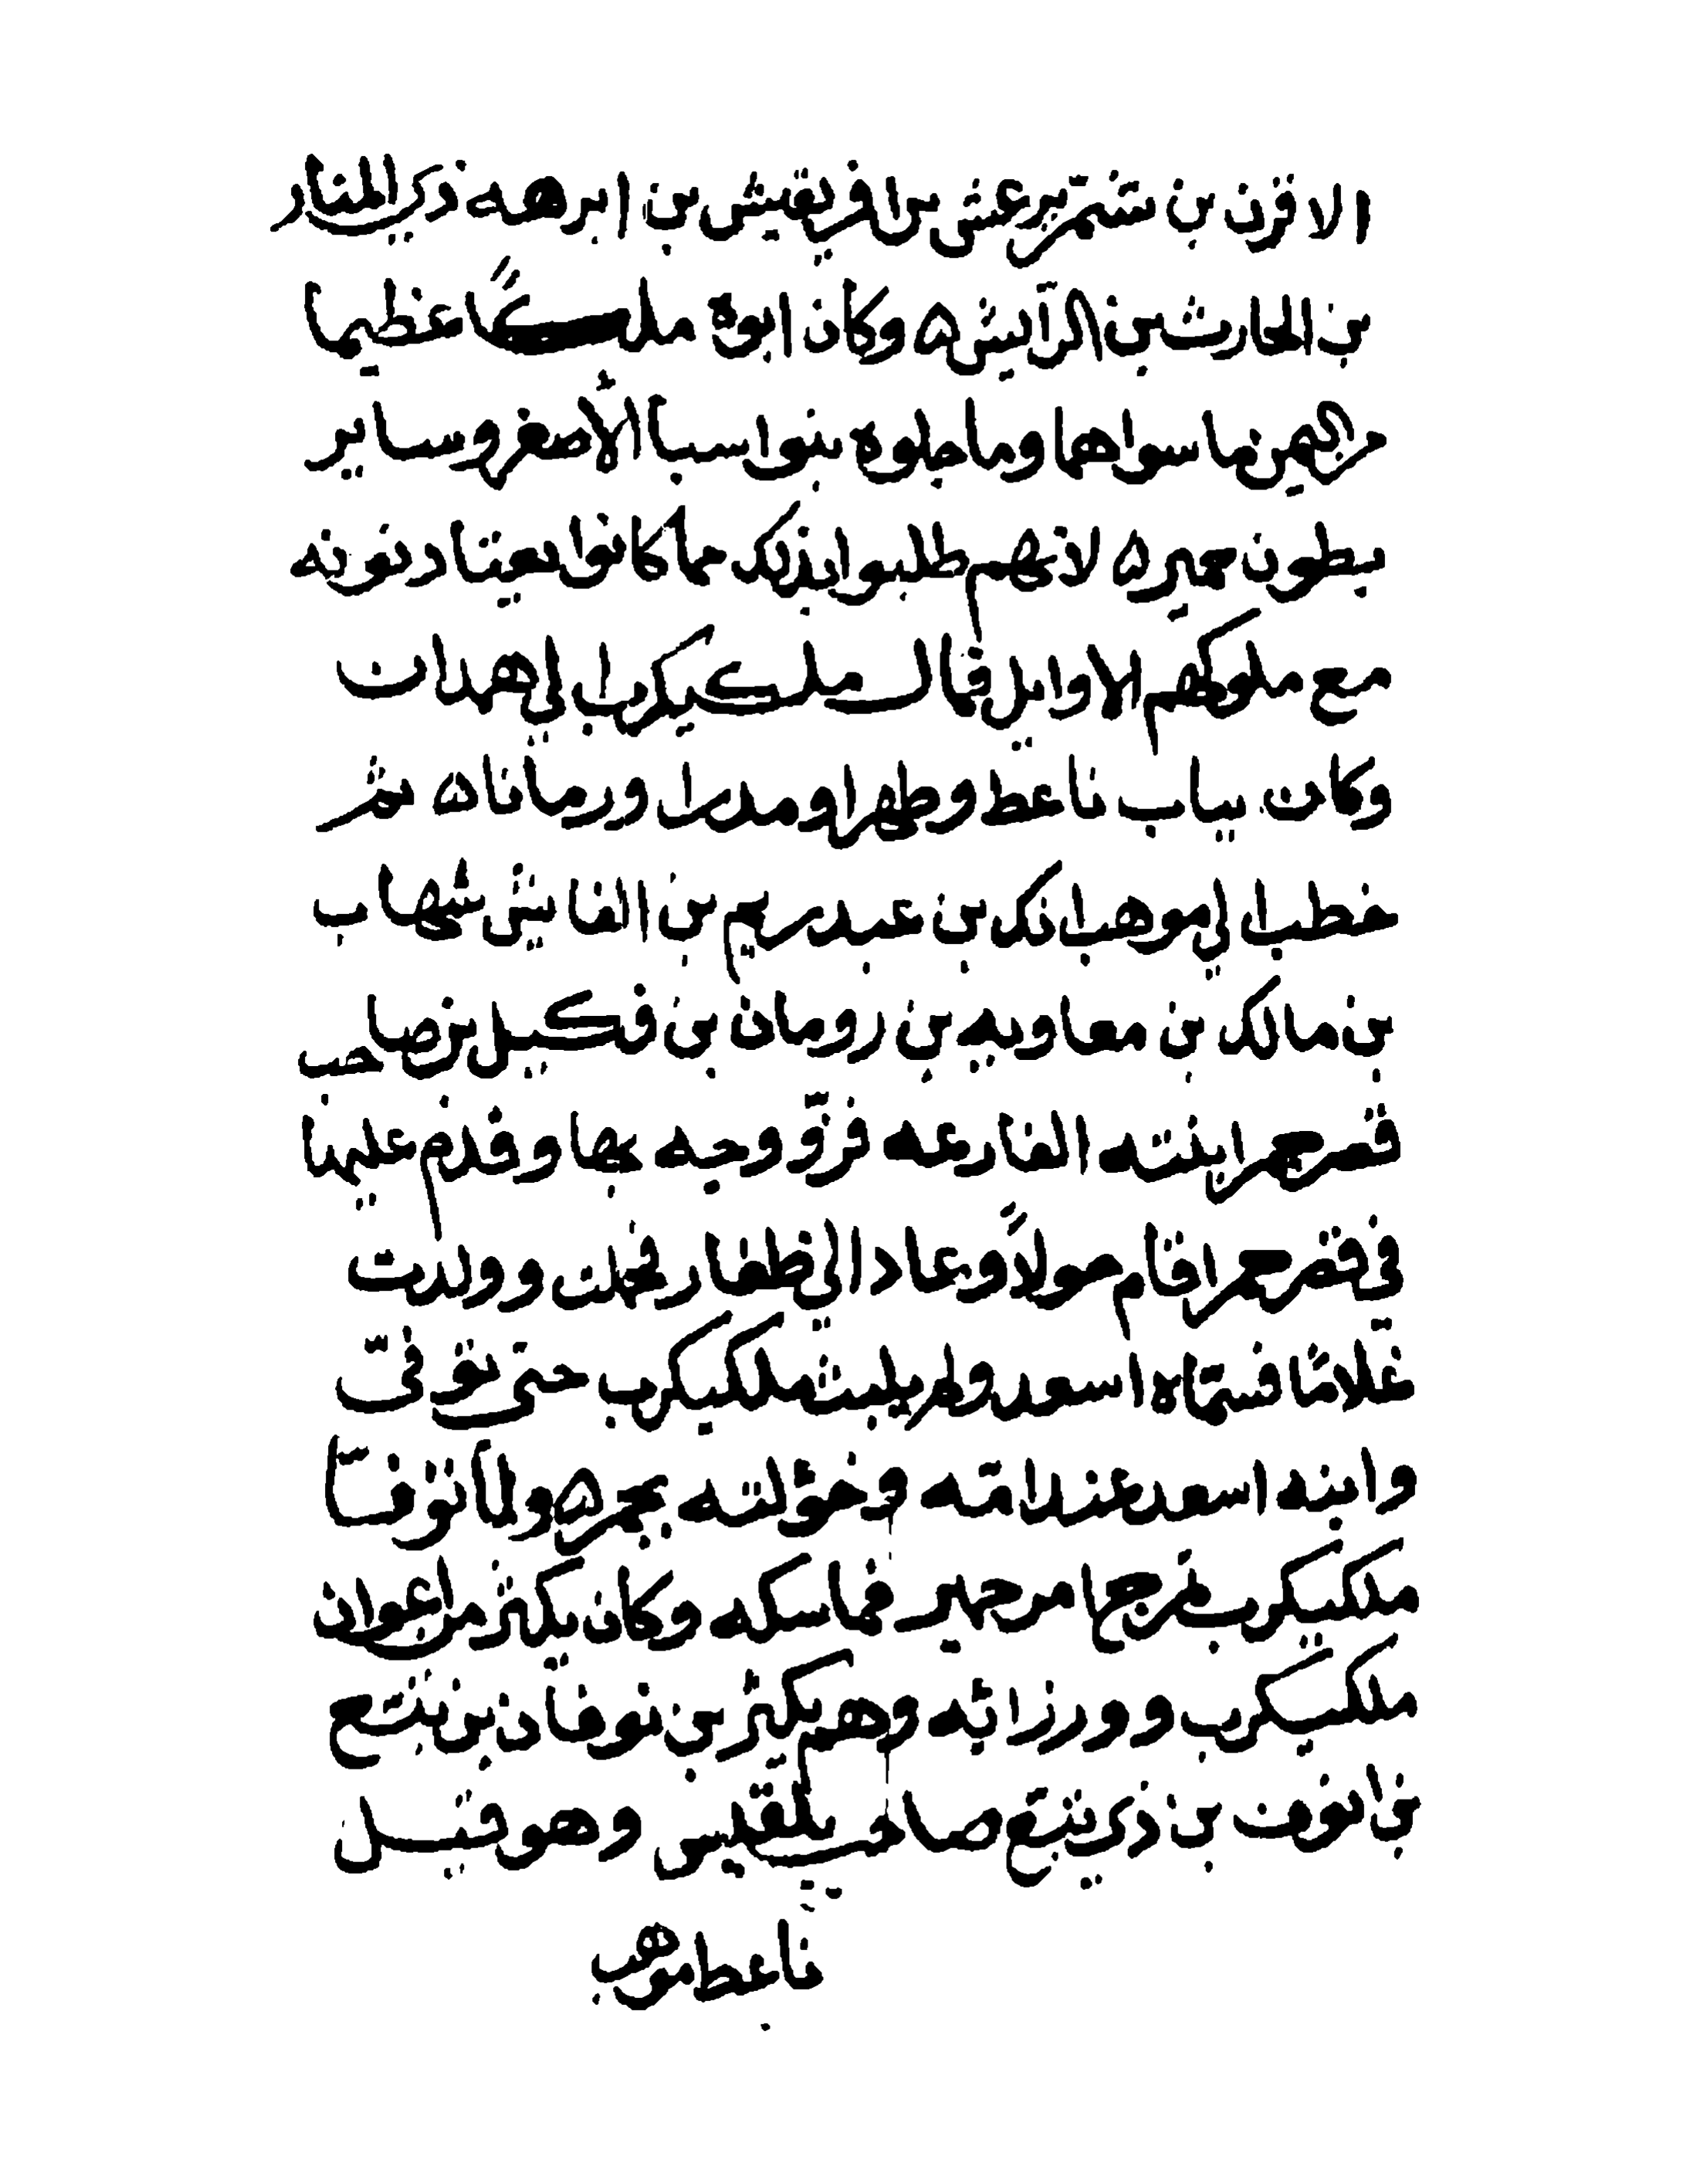 الاقرن بن شمّر يرعش بن افريقيش بن ابرهه ذي المنار
بن الحارث بن الرآيش ه وكان ابوه ملكًا عظيما
من الهمن ما سواها وما جلوه بنوا سبا الأصغر وساير
بطون حمير ه لانهم طلبوا بذلك مما كانوا يعتادونه
مع ملوكهم الاوايل فمال ملكيكرب الى همدان
وكان بباب ناعط وطهرا ومدرا ورمانا ه ثم
خطب الي موهب انك بن عبد ريم بن الفايش شهاب
بن مالك بن معاويه بن رومان بن فكيل بن صاحب
قصر ابنته الفارعه فزوّجه بها وقدم عليها
في قصر اقام حولاً وعاد الي ظفار فحملت وولدت
غلامًا فسمّاه اسعد ولم يلبث ملكيكرب حتى توفىّ
وابنه اسعد عند امّه وخؤلته ه ولما توفـّا
ملكيكرب من حمير فماسكه وكان يكثر من اعوان
ملكيكرب ووزرائه وهم يكثر بن نوفان بن بتع
بن نوف بن ذي بتع صاحب بلقيس وهو قيل
ناعط موهب